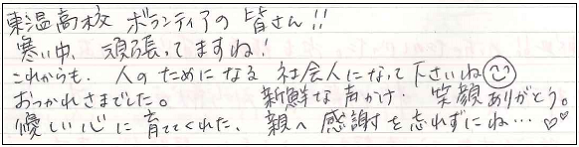 東温高校 ボランティアの 皆さん!!
寒い中、頑張ってますね!
これからも、人のためになる 社会人になって下さいね
おつかれさまでした。 新鮮な声かけ 笑顔ありがとう。
優しい心に育ててくれた、親へ感謝を忘れずにね…♡♡